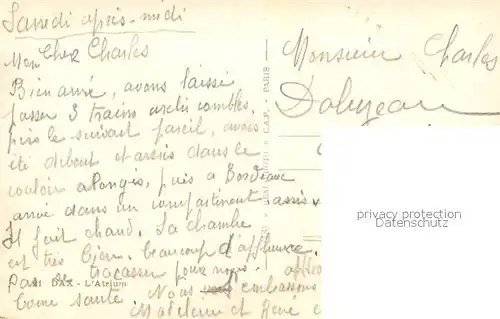 Samedi après-midi
Mon Cher Charles
Bien arrivé, avons laissé
passer 3 trains archi combles,
puis le suivant pareil, avons
été debout et assis dans le
couloir allongés, puis à Bordeaux
arrivé dans un compartiment assis
Il fait chaud. La chambre
est très bien, beaucoup d'affluence.
Pas tracasser pour nous.
DAX - L'Atrium
Bonne santé. Nous embrassons
Madeleine et René
Monsieur Charles
PARIS
privacy protection
Datenschutz